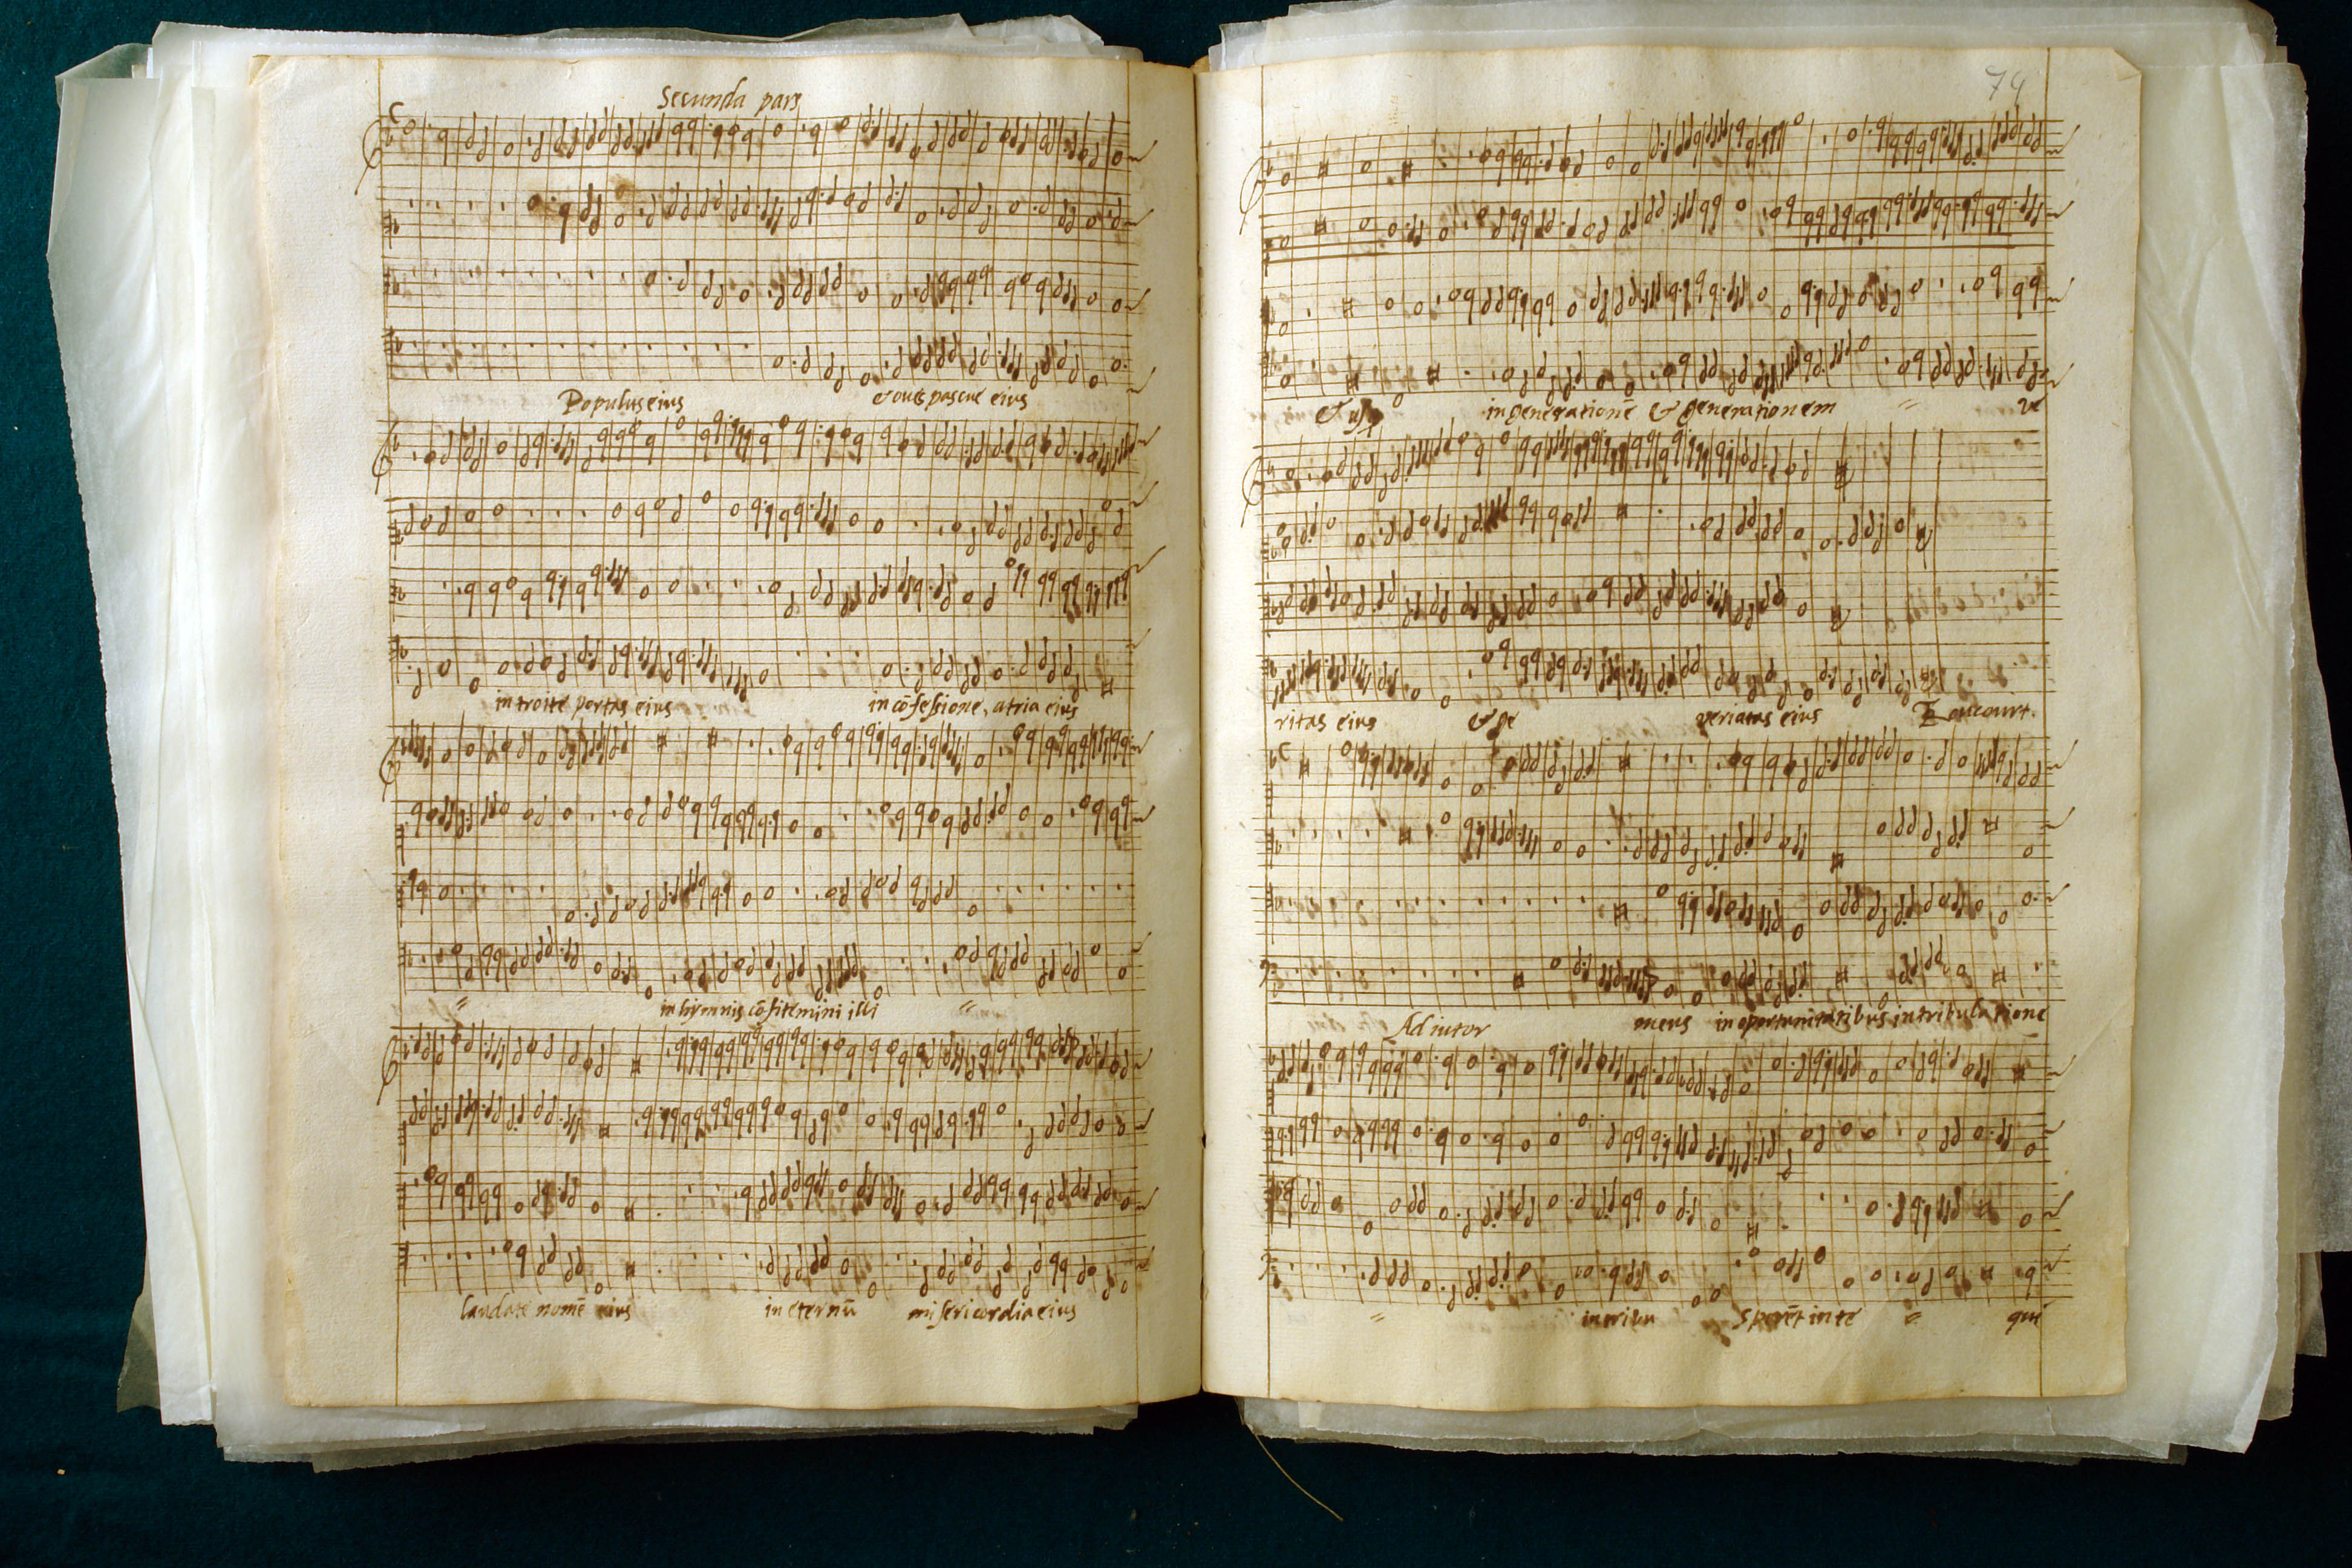 Secunda pars
Populus eius et oves pascue eius
introite portas eius in cōfessione, atria eius
in hymnis cōfitemini illi
laudate nomē eius in eternū misericordia eius
74
& usq in generationē & generationem ve
ritas eius veriatas eius
Adiutor meus in oportunitatibus in tribulatione
in tribu Sperēt in te qui